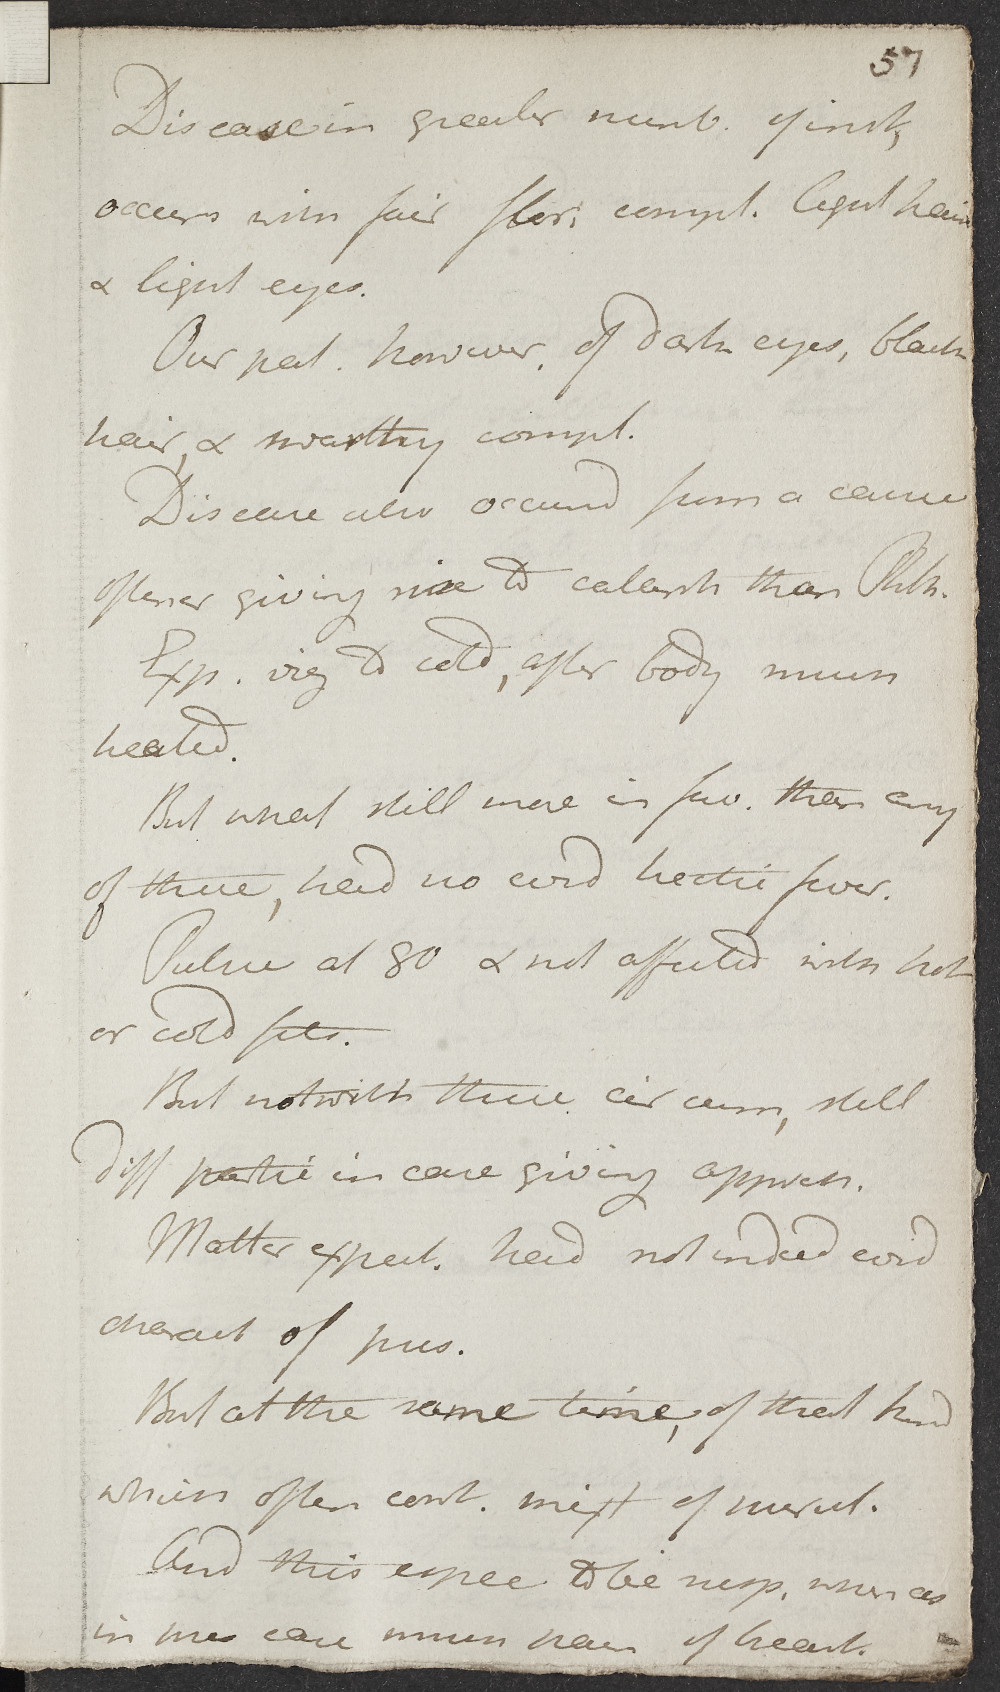 57
Disease in greater numb. of inst,
occurs with fair flori compl. light hair
& light eyes.
Our pat. however, of dark eyes, black
hair, & swarthy compl.
Disease also occurred from a cause
oftener giving rise to catarrh than Phth.
Exp. viz to cold, after body much
heated.
But what still more in fav. than any
of these, had no evid hectic fever.
Pulse at 80 & not affected with hot
or cold fits.
But notwith these circum, still
diff partic in case giving appreh.
Matter expect. had not indeed evid
charact of pus.
But at the same time, of that kind
which often cont. mixt of
And this espec to be when as
in this case much pain of heart.